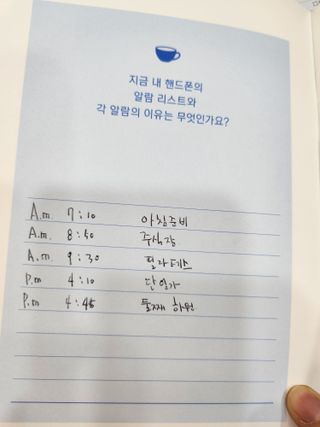 지금 내 핸드폰의
알람 리스트와
각 알람의 이유는 무엇인가요?
A.m. 7:10 아침준비
A.m. 8:50 주식장
A.m. 9:30 필라테스
P.m 4:10 단일가
P.m 4:45 둘째 하원